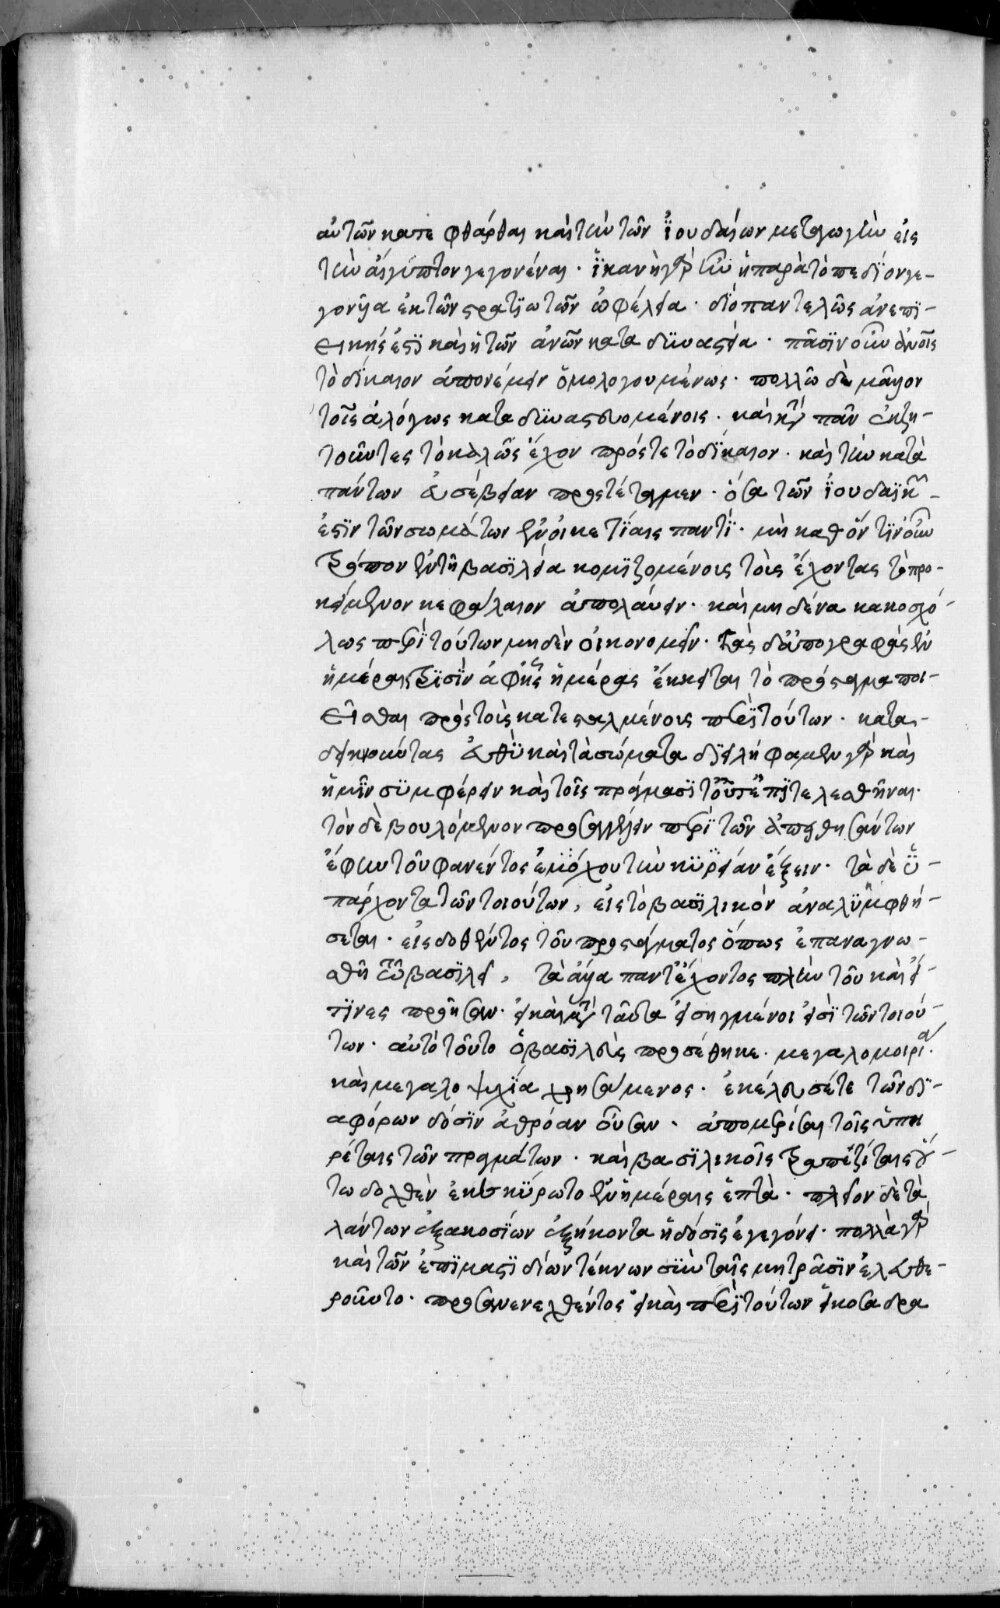 αὐτῶν κατεφθάρθαι καὶ τὴν τῶν ἰουδαίων μεταγωγὴν εἰς
τὴν αἴγυπτον γεγονέναι· ἱκανὴ γὰρ ἦν ἡ παρὰ τὸ πεδίον γε-
γονυῖα ἐκ τῶν στρατιωτῶν ὠφέλεια· διὸ παντελῶς ἀνεπι-
εικής ἐστι καὶ ἡ τῶν ἀνων καταδυναστεία· πᾶσιν οὖν ἀνοις
τὸ δίκαιον ἀπονέμειν ὁμολογουμένως· πολλῷ δὲ μᾶλλον
τοῖς ἀλόγως καταδυναστευομένοις· καὶ κατὰ πᾶν ἐκζη-
τοῦντες τὸ καλῶς ἔχον πρός τε τὸ δίκαιον· καὶ τὴν κατὰ
πάντων εὐσέβειαν προστέταχμεν· ὅσα τῶν ἰουδαϊκῶν
ἐστιν τῶν σωμάτων ἐν οἰκετίαις παντὶ· μὴ καθ' ὅντινοῦν
τρόπον ἐν τῇ βασιλεία κομιζομένοις τοὺς ἔχοντας τὸ προ-
κείμενον κεφάλαιον ἀπολαύειν· καὶ μηδένα κακοσχό-
λως περὶ τούτων μηδὲν οἰκονομεῖν· τὰς δ' ἀπογραφὰς ἐν
ἡμέραις τρισὶν ἀφ' ἧς ἡμέρας ἔκκειται τὸ πρόσταγμα ποι-
εῖσθαι πρὸς τοὺς κατεσταλμένους περὶ τούτων· κατα-
δεικνύοντας εὐθὺ καὶ τὰ σώματα διειλήφαμεν γὰρ καὶ
ἡμῖν συμφέρειν καὶ τοῖς πράγμασι τοῦτ' ἐπιτελεσθῆναι·
τὸν δὲ βουλόμενον προσαγγέλλειν περὶ τῶν ἀπειθησάντων
ἐφ' ᾧ τοῦ φανέντος ἐνόχου τὴν κυρείαν ἕξειν· τὰ δὲ ὑ-
πάρχοντα τῶν τοιούτων, εἰς τὸ βασιλικὸν ἀναληφθή-
σεται· εἰσδοθέντος τοῦ προστάγματος ὅπως ἐπαναγνω-
σθῇ τῷ βασιλεῖ, τὰ ἄλλα πάντ' ἔχοντος πλὴν τοῦ καὶ εἴ
τινες προῆσαν· ἢ καὶ μετὰ ταῦτα εἰσηγμένοι εἰσὶ τῶν τοιού-
των· αὐτὸ τοῦτο ὁ βασιλεὺς προσέθηκε· μεγαλομοιρία
καὶ μεγαλοψυχία χρησάμενος· ἐκέλευσέ τε τῶν δι-
αφόρων δόσιν ἀθρόαν οὖσαν· ἀπομερίσαι τοῖς ὑπη
ρέταις τῶν πραγμάτων· καὶ βασιλικοῖς τραπεζίταις οὕ-
τω δοχθὲν ἐκεκύρωτο ἐν ἡμέραις ἑπτὰ· πλεῖον δὲ τα
λάντων ἑξακοσίων ἑξήκοντα ἡ δόσις ἐγεγόνει· πολλὰ γὰρ
καὶ τῶν ἐπιμαστιδίων τέκνων σὺν ταῖς μητράσιν ἐλευθε-
ροῦντο· προσανενεχθέντος εἰ καὶ περὶ τούτων εἰκοσαδρα